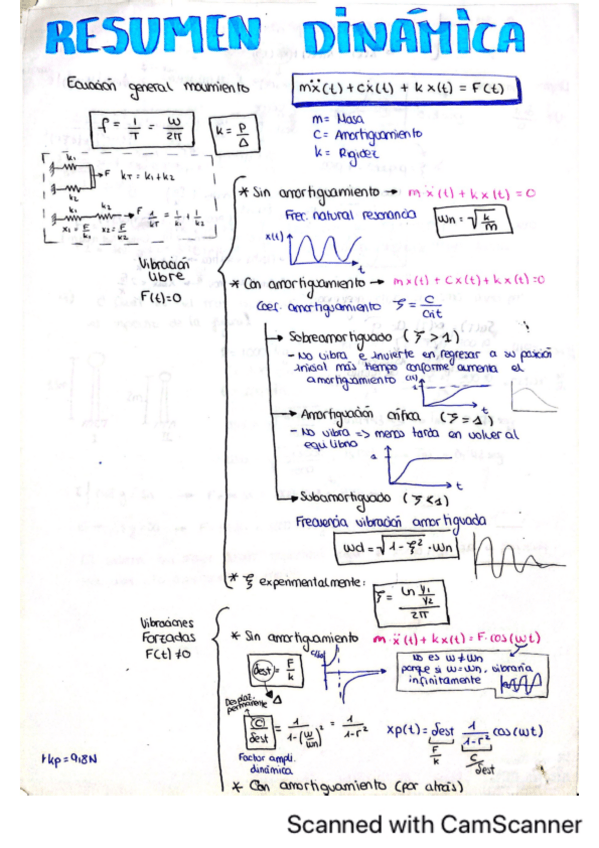 RESUMEN DINÁMICA
Ecuación general movimiento
mẍ(t) + cẋ(t) + k x(t) = F(t)
f = 1/T = ω/2π
k = P/Δ
m = Masa
C = Amortiguamiento
k = Rigidez
k₁
F
k₂
kT = k₁ + k₂
k₁ k₂
F
1/kT = 1/k₁ + 1/k₂
x₁ = F/k₁ x₂ = F/k₂
Vibración
libre
F(t)=0
* Sin amortiguamiento → m ẍ(t) + k x(t) = 0
Frec. natural resonancia
ωn = √(k/m)
x(t)
t
* Con amortiguamiento → mẍ(t) + cẋ(t) + k x(t) = 0
Coef. amortiguamiento ξ = C/Crit
→ Sobreamortiguado (ξ > 1)
- No vibra e invierte en regresar a su posición
inicial más tiempo conforme aumenta el
amortiguamiento
t
→ Amortiguación crítica (ξ = 1)
- No vibra => menos tarda en volver al
equilibrio
t
→ Subamortiguado (ξ < 1)
Frecuencia vibración amortiguada
ωd = √(1 - ξ²) · ωn
* ξ experimentalmente:
ξ = ln (y₁/y₂) / 2π
Vibraciones
Forzadas
F(t) ≠ 0
* Sin amortiguamiento m·ẍ(t) + kx(t) = F·cos(ωt)
δest = F/k
Desplaz.
permanente
Δ
no es ω ≠ ωn
porque si ω = ωn, vibraría
infinitamente
C/δest = 1/(1-(ω/ωn)²) = 1/(1-r²)
Factor ampli.
dinámica
xp(t) = δest 1/(1-r²) cos(ωt)
F/k
C/δest
1kp = 9,8N
* Con amortiguamiento (por atrás)
Scanned with CamScanner